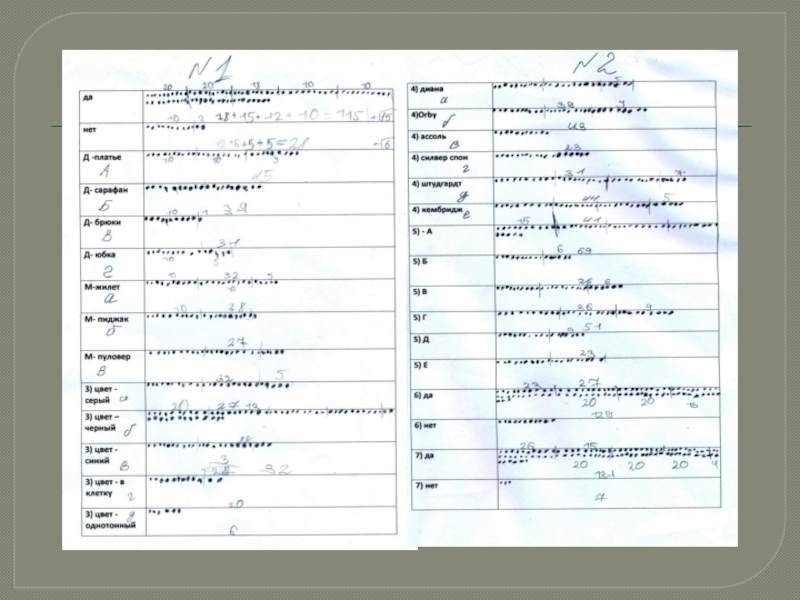 N1
20 20 18 10 10
да
10 2 18+15+12+10=115 +15
нет
12+6+5+5=28 +6
Д -платье
А
45
Д- сарафан
Б
39
Д- брюки
В
31
Д- юбка
г
32
М-жилет
а
38
М- пиджак
б
27
М- пуловер
в
32 5
3) цвет -
серый а
20 27 19
3) цвет –
черный б
3) цвет -
синий в
32
3) цвет - в
клетку г
3) цвет - д
однотонный
6
N2
4) диана
а
39 7
4)Orby
б
43
4) ассоль
в
23
4) силвер спон
г
31 7
4) штудгардт
д
44 5
4) кембридж е
15 41
5) - А
6 69
5) Б
26 6
5) В
26 9
5) Г
51
5) Д
23
5) Е
23 27
6) да
20 20
129
6) нет
26 15
7) да
20 20 20 4
121
7) нет
7